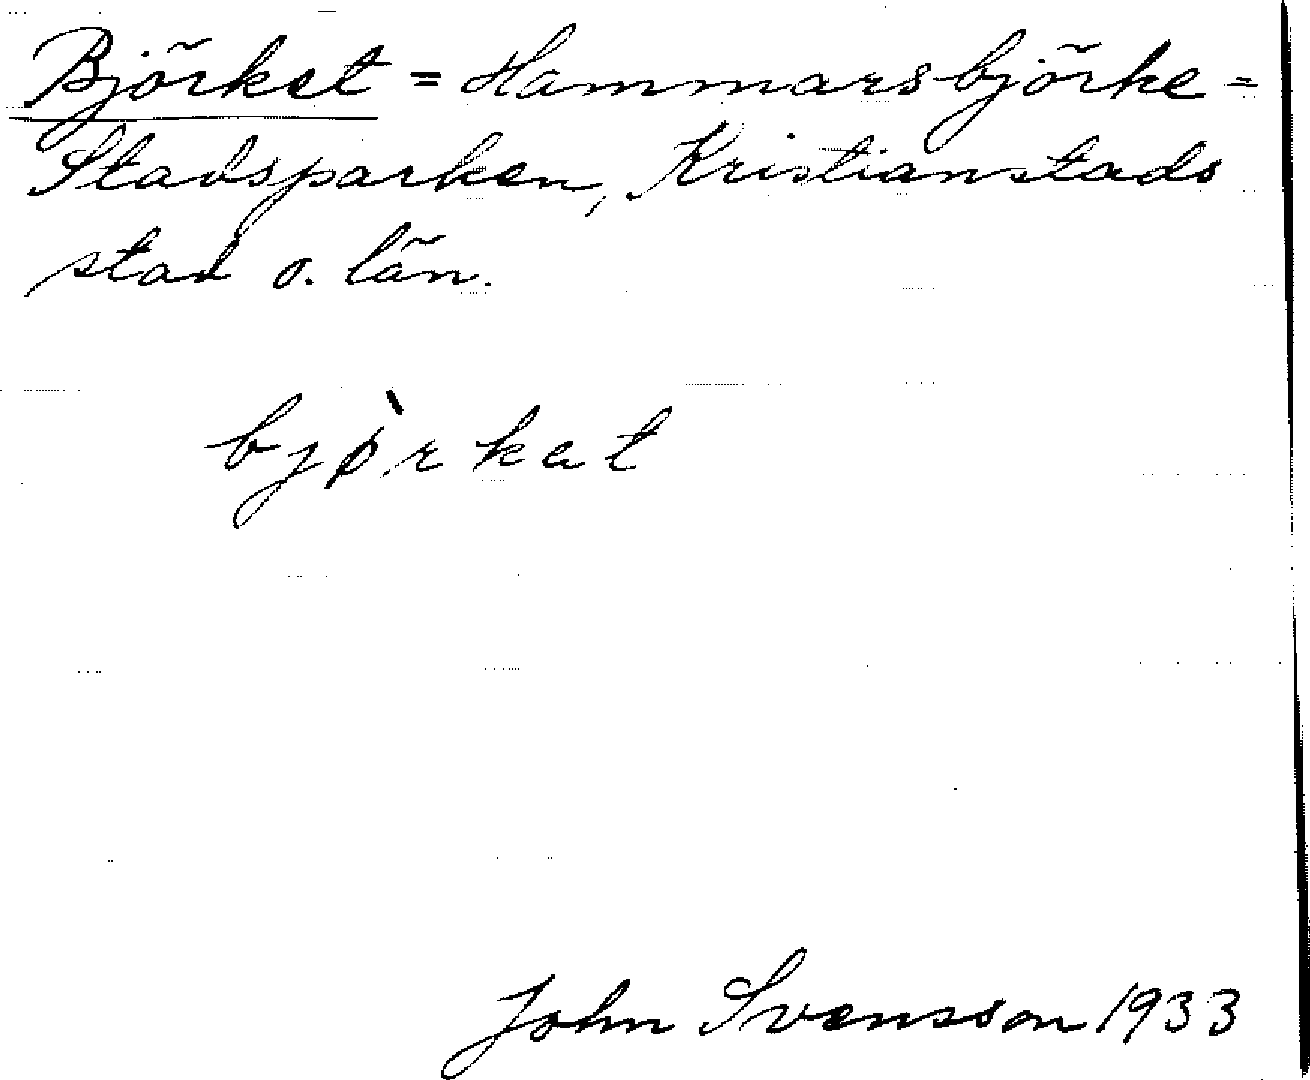 Björket = Hammarsbjörke =
Stadsparken, Kristianstads
stad o. län.
bjø̀rkat
John Svensson 1933